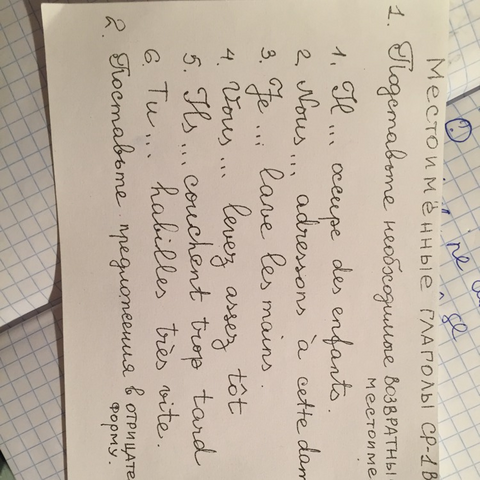 Местоимённые глаголы СР-1В
1. Подставьте необходимые возвратны
местоиме
1. Il ... occupe des enfants.
2. Nous ... adressons à cette dam
3. Je ... lave les mains.
4. Vous ... levez assez tôt
5. Ils ... couchent trop tard
6. Tu ... habilles très vite.
2. Поставьте предложения в отрицате
форму.